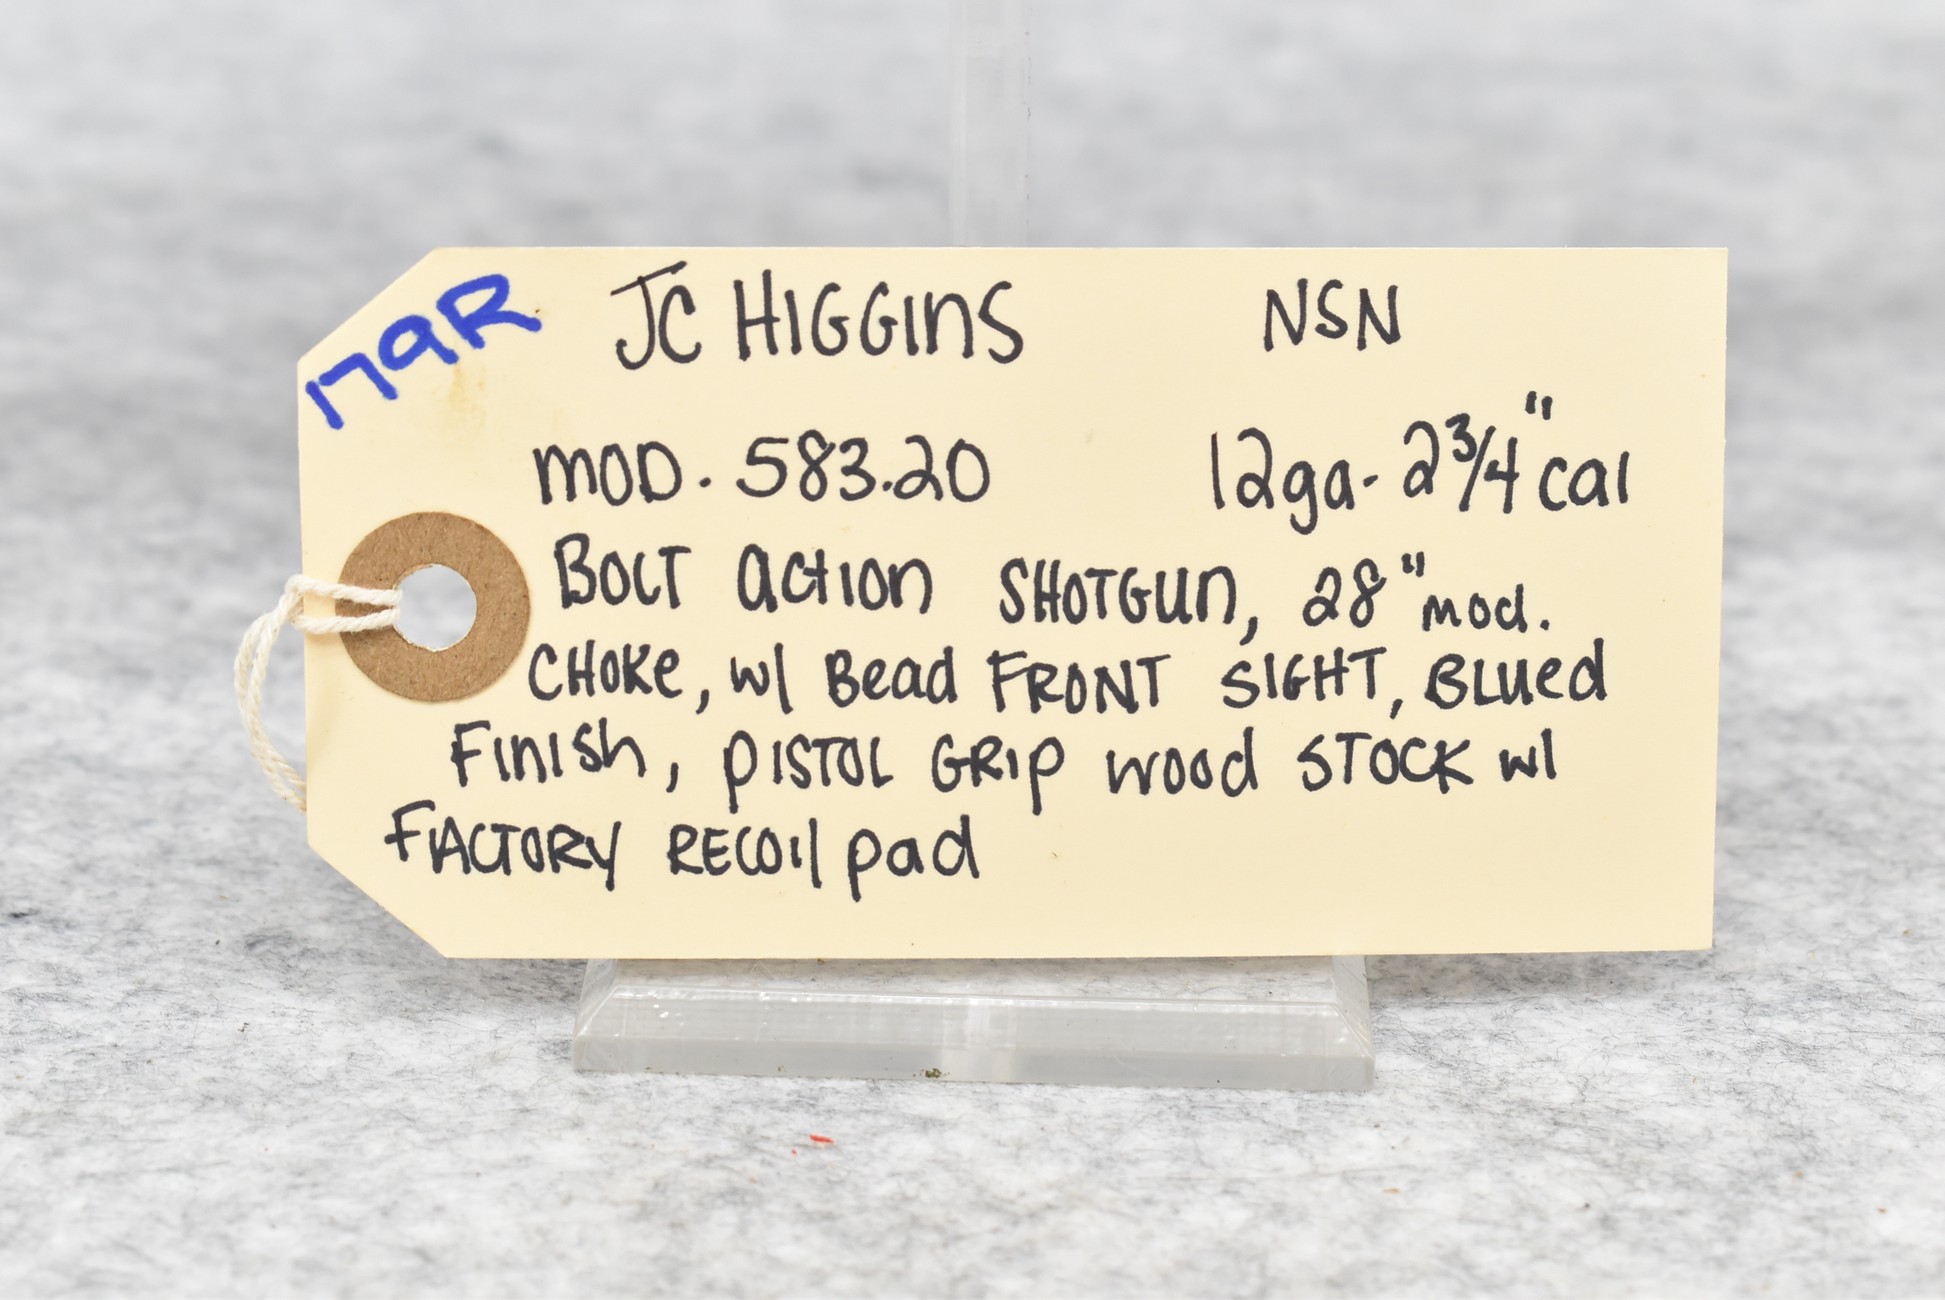 179R
JC HIGGINS NSN
MOD. 583.20 12ga- 2 3/4" cal
BOLT action SHOTGUN, 28" mod.
CHOKE, w/ Bead FRONT SIGHT, BLUED
FINISH, PISTOL GRIP WOOD STOCK w/
FACTORY RECOIL pad